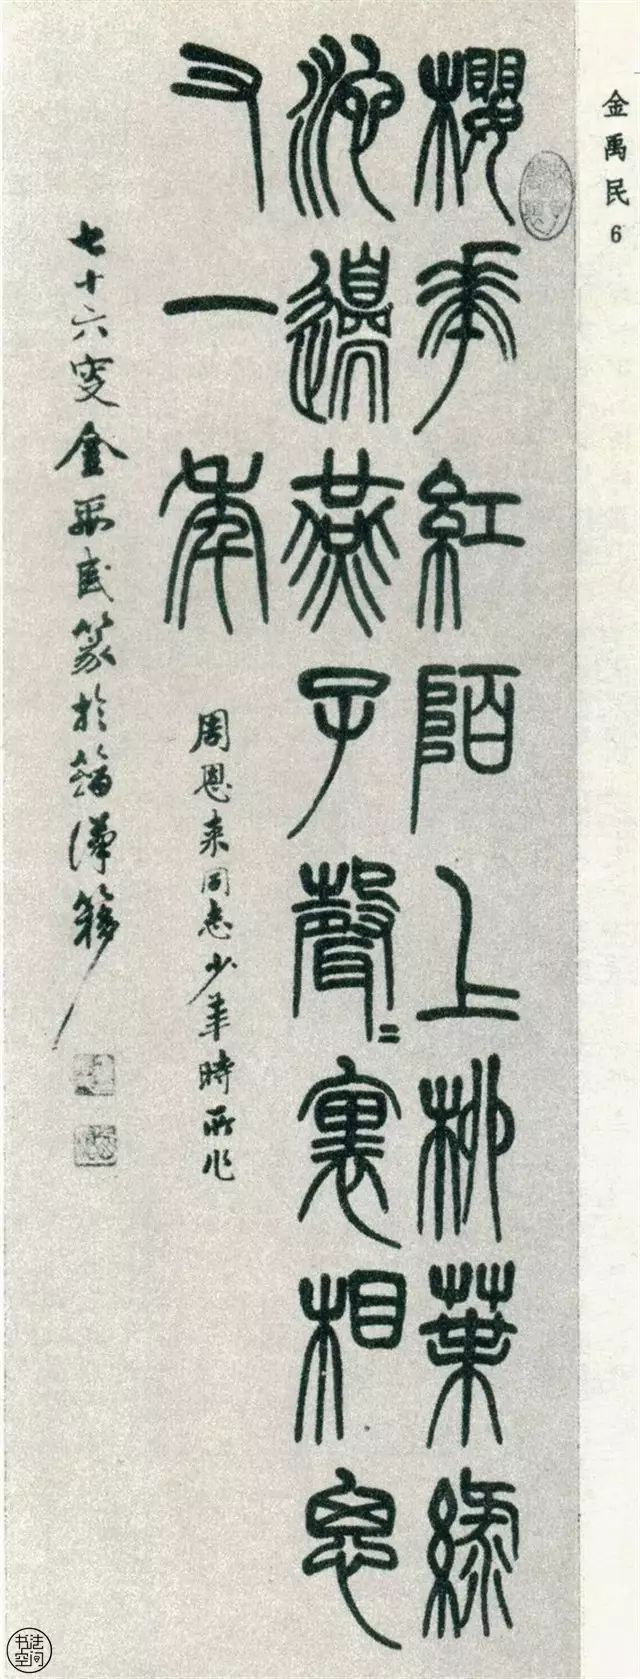 金禹民 6
櫻華紅陌上柳葉綠
池邊燕子聲〻裏相思
又一年
周恩来同志少年時所作
七十六叟金禹民篆於籀漢簃
书法空间